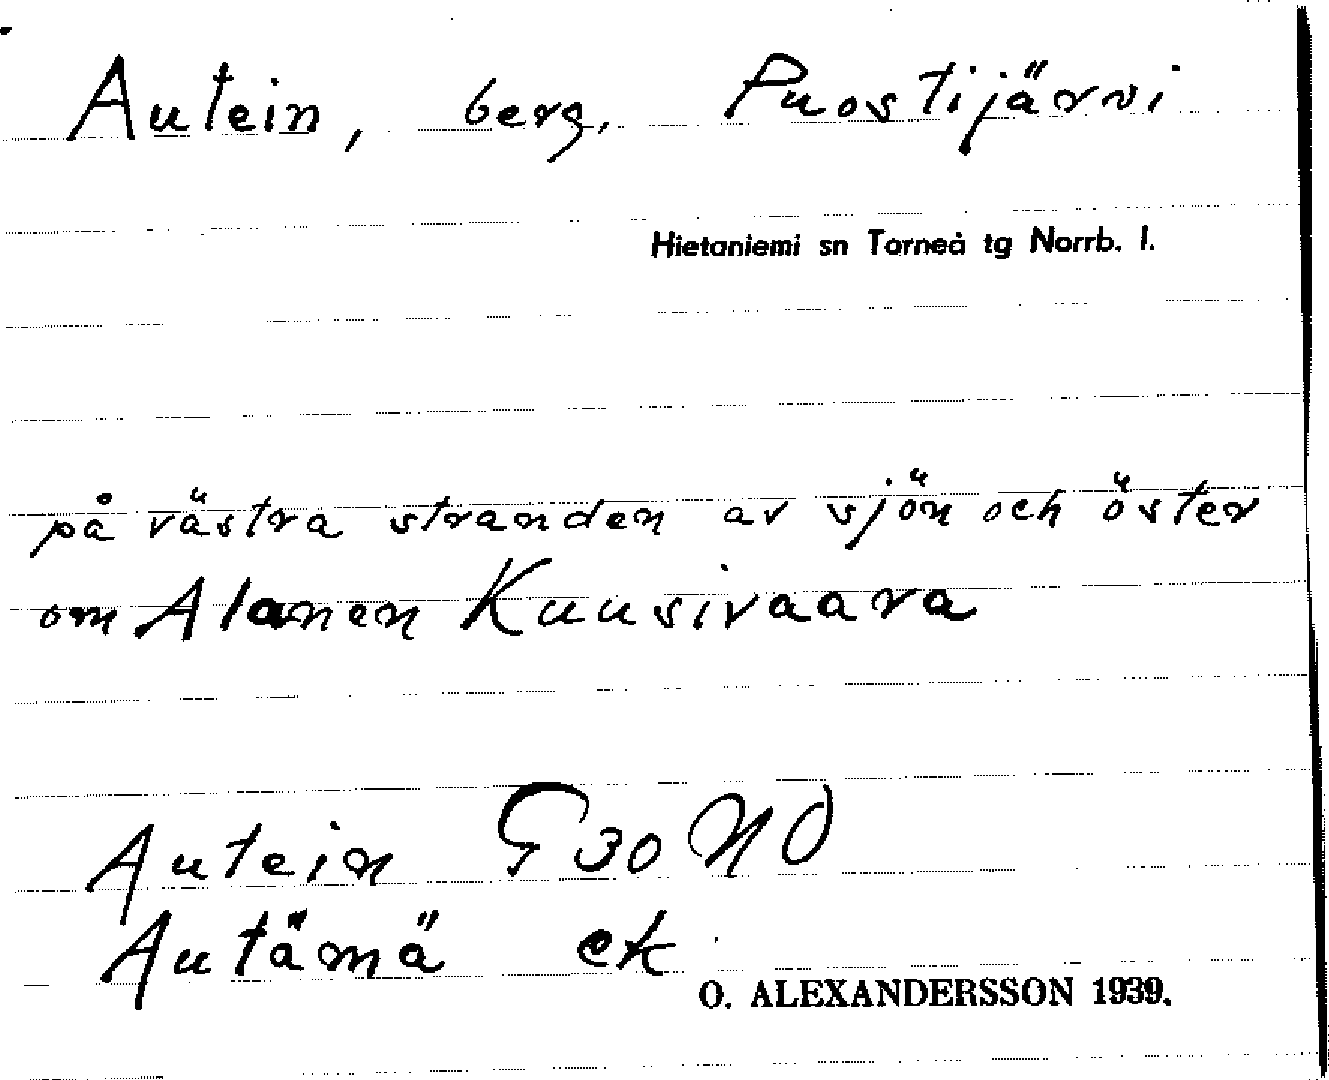 Autein, berg. Puostijärvi
Hietaniemi sn Torneå tg Norrb. l.
på västra stranden av sjön och öster
om Alanen Kuusivaara
Autein G 30 NO
Autämä ek
O. ALEXANDERSSON 1939.